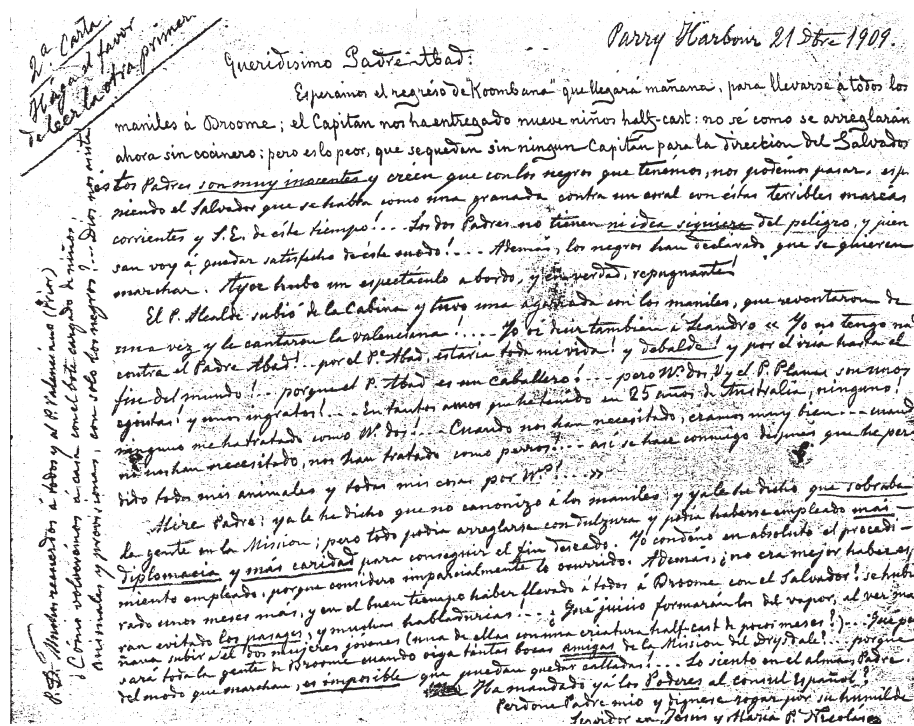 2.ª Carta
Haga el favor
de leer la otra primero
Parry Harbour 21 Dbre 1909.
Queridisimo Padre Abad:
Esperamos el regreso de "Koombana" que llegará mañana, para llevarse á todos los
maniles á Broome; el Capitán nos ha entregado nueve niños half-cast: no sé como se arreglarán
ahora sin cocinero; pero es lo peor, que se quedan sin ningun Capitán para la direccion del Salvador
éstos Padres son muy inocentes y creen que con los negros que tenemos, nos podemos pasar, es
niendo el Salvador que se habra como una granada contra un coral con éstas terribles mareas
corrientes y S.E. de éste tiempo!... Los dos Padres no tienen ni idea siquiera del peligro, y pien
san voy á quedar satisfecho de éste modo!... Además, los negros han declarado que se quieren
marchar. Ayer hubo un espectáculo abordo, y en verdad, repugnante!
El P. Alcalde subió de la Cabina y tuvo una agarrada con los maniles, que reventaron de
una vez y le cantaron la valenciana!.... Yo oi decir tambien á Leandro « Yo no tengo na
contra el Padre Abad! por el P. Abad, estaria toda mi vida! y debalde! y por el iria hasta el
fin del mundo!... porque el P. Abad es un caballero!... pero Vd. dos, V y el P. Planas son unos
egoistas! y unos ingratos!... En tantos amos que he tenido en 25 años de Australia, ninguno!
ninguno me ha tratado como Vds. dos!... Cuando nos han necesitado, eramos muy bien... cuand
no nos han necesitado, nos han tratado como perros!... asi se hace conmigo despues que he per
dido todos mis animales y todas mis cosas por Vds!... »
Mire Padre; ya le he dicho que no canonizo á los maniles, y ya le he dicho que sobraba
la gente en la Mission; pero todo podia arreglarse con dulzura y podia haberse empleado más
diplomacia y más caridad para conseguir el fin deseado. Yo condeno en absoluto el procedi-
miento empleado, porque considero imparcialmente lo ocurrido. Además, ¿no era mejor haber es
rado unos meses más, y en el buen tiempo haber llevado á todos á Broome con el Salvador? se hubie
ran evitado los pasages, y muchas habladurias!... ¿Qué juicio formarán los del vapor, al ver ma
ñana subir á él dos mujeres jóvenes (una de ellas con una criatura half-cast de pocos meses?)... ¿Qué pe
sará toda la gente de Broome cuando oiga tantas bocas amigas de la Mission del Drysdale!... porque
del modo que marchan, es imposible que puedan quedar calladas!... Lo siento en el alma, Padre.
Ha mandado ya los Poderes al Consul Español?
Perdone Padre mio y dignese rogar por su humilde
Servidor en Jesus y Maria P. Nicolás
P.D. Muchos recuerdos á todos y al P. Valenciano (Prior)
¿Cómo volvemos á casa con el bote cargado de niños
animales y provisiones, con solo los negros?... Dios nos asista!